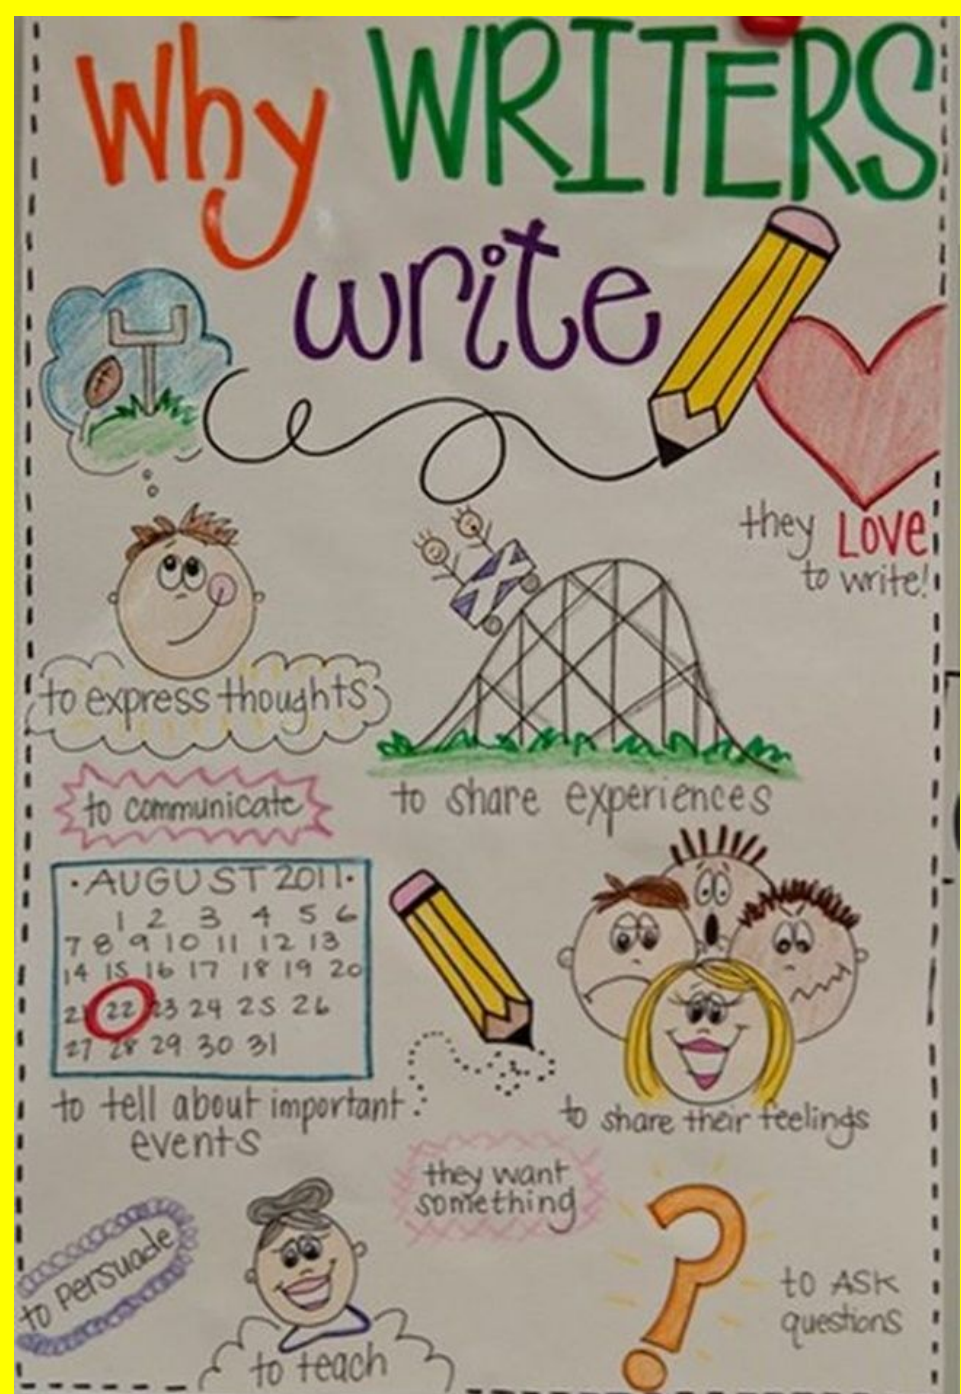 Why WRITERS
write
they LOVE
to write!
to express thoughts
to communicate
to share experiences
·AUGUST 2011·
1 2 3 4 5 6
7 8 9 10 11 12 13
14 15 16 17 18 19 20
21 22 23 24 25 26
27 28 29 30 31
to tell about important
events
to share their feelings
they want
something
to persuade
to teach
to ASK
questions